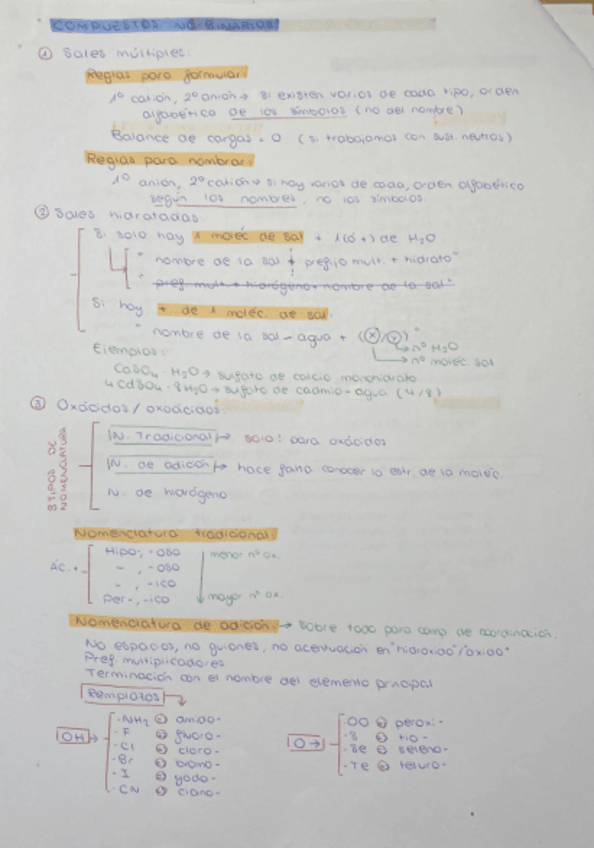 COMPUESTOS NO BINARIOS
① Sales múltiples:
Reglas para formular:
1º catión, 2º anión → si existen varios de cada tipo, orden
alfabético de los símbolos (no del nombre)
Balance de cargas = 0 (si trabajamos con sust. neutras)
Reglas para nombrar:
1º anión, 2º catión → si hay varios de cada, orden alfabético
según los nombres, no los símbolos.
② Sales hidratadas:
Si solo hay 1 moléc de sal + 1 (ó +) de H2O
"nombre de la sal + prefijo mult. + hidrato"
"pref mult + hidrógeno + nombre de la sal"
Si hay + de 1 moléc. de sal:
"nombre de la sal - agua + (X/Y)"
nº H2O
nº moléc. sal
Ejemplos:
CaSO4 · H2O → sulfato de calcio monohidrato
4CdSO4 · 8H2O → sulfato de cadmio-agua (4/8)
③ Oxácidos / oxoácidos:
3 TIPOS DE NOMENCLATURA
N. Tradicional → solo! para oxácidos
N. de adición → hace falta conocer la estr. de la moléc
N. de hidrógeno
Nomenclatura tradicional:
Ác. +
Hipo-, -oso menor nº ox.
- , -oso
- , -ico
Per-, -ico mayor nº ox.
Nomenclatura de adición: → sobre todo para comp. de coordinación.
No espacios, no guiones, no acentuación en "hidroxido"/"oxido"
Pref. multiplicadores
Terminación con el nombre del elemento principal
Remplazos
OH →
·NH2 → amido-
·F → fluoro-
·Cl → cloro-
·Br → bromo-
·I → yodo-
·CN → ciano-
O →
·OO → peroxi-
·S → tio-
·Se → seleno-
·Te → teluro-